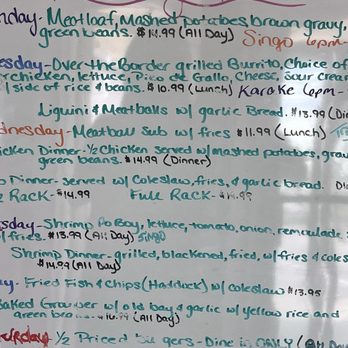 nday- Meatloaf, Mashed potatoes, brown gravy,
green beans. $14.99 (All Day) Singo 6pm-
esday- Over the Border grilled Burrito, Choice of
r chicken, lettuce, Pico de Gallo, Cheese, Sour cream
w/ side of rice & beans. $10.99 (Lunch) Karaoke 6pm-
Liguini & Meatballs w/ garlic Bread. $13.99 (Din
dnesday- Meatball Sub w/ fries $11.99 (Lunch)
icken Dinner- 1/2 Chicken served w/ mashed potatoes, grav
green beans. $14.99 (Dinner)
Dinner- Served w/ Coleslaw, fries, & garlic bread.
2 Rack- $14.99 Full Rack-
rsday- Shrimp Po Boy, lettuce, tomato, onion, remoulade
w/ fries. $13.99 (All Day) Singo
Shrimp Dinner- grilled, blackened, fried, w/ fries & coles
$14.99 (All Day)
ay- Fried Fish & Chips (Haddock) w/ coleslaw $13.95
Baked Grouper w/ old bay & garlic w/ yellow rice and
green beans- (All Day)
turday- 1/2 Priced Burgers- Dine in ONLY (All Day